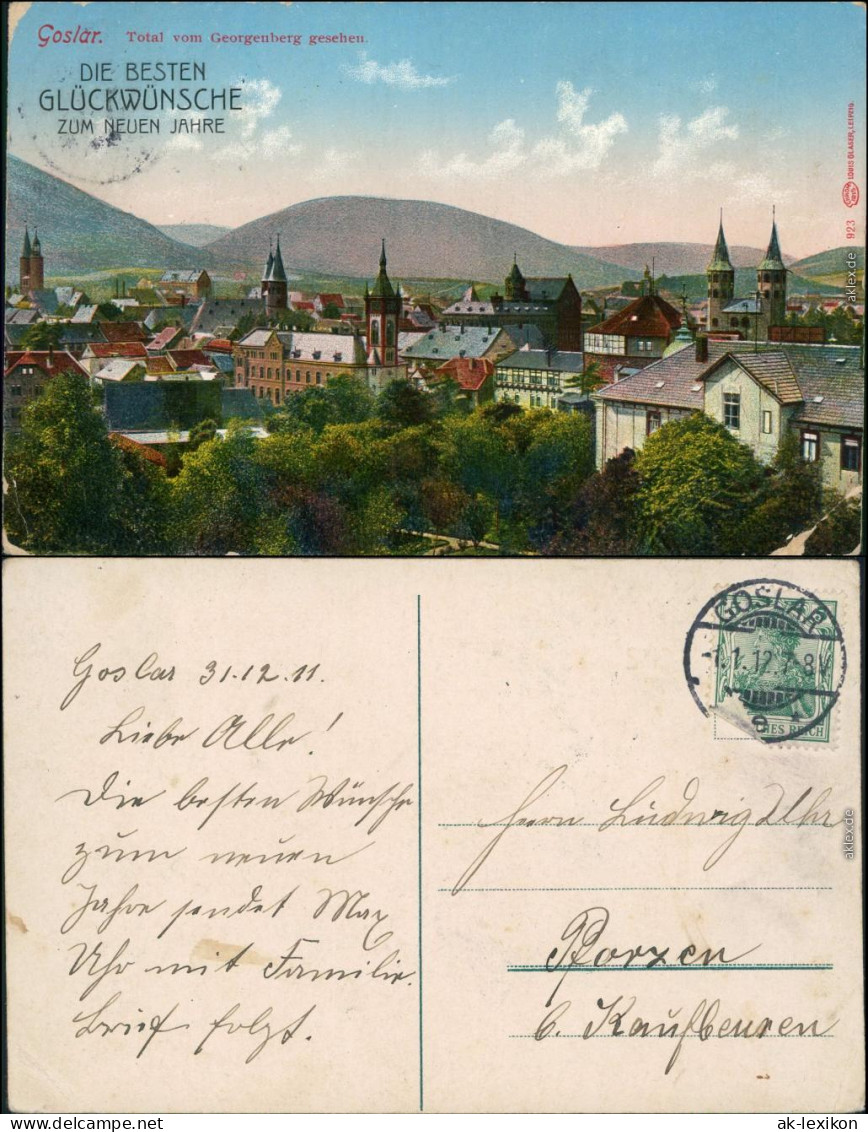 Goslar. Total vom Georgenberg gesehen.
DIE BESTEN
GLÜCKWÜNSCHE
ZUM NEUEN JAHRE
LOUIS GLASER, LEIPZIG
923
aklex.de
Goslar 31.12.11.
Liebe Alle!
Die besten Wünsche
zum neuen
Jahre sendet Max
Uhr mit Familie.
Brief folgt.
GOSLAR
1.1.12.7-8V
* e *
REICH
Herrn Ludwig Uhr
Pforzen
b. Kaufbeuren
aklex.de
www.ak-lexikon.de
ak-lexikon